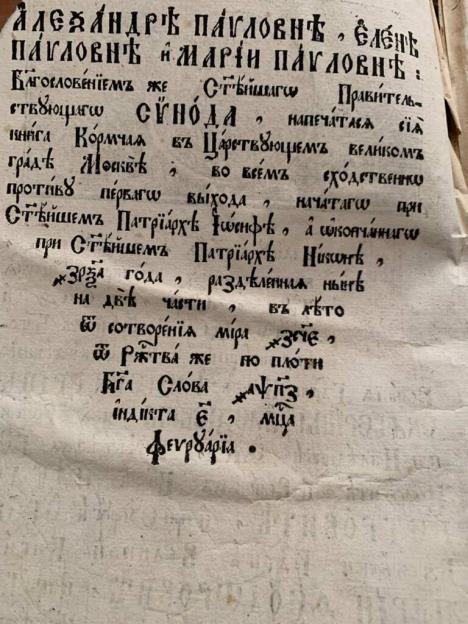 А҆леѯа́ндрѣ Па́ѵловнѣ , Є҆ле́нѣ
Па́ѵловнѣ и҆ Марі́и Па́ѵловнѣ :
Бл҃гослове́нїемъ же Ст҃ѣ́йшагѡ Прави́тель-
ствꙋющагѡ Сѷно́да , напеча́тасѧ сїѧ̀
кни́га Ко́рмчаѧ въ Ца́рствꙋющемъ вели́комъ
гра́дѣ Москвѣ̀ , во все́мъ схо́дственнѡ
проти́вꙋ пе́рвагѡ вы́хода , нача́тагѡ при
Ст҃ѣ́йшемъ Патрїа́рхѣ І҆ѡ́сифѣ , а҆ ѡ҆конча́ннагѡ
при Ст҃ѣ́йшемъ Патрїа́рхѣ Ни́конѣ ,
҂зрѯ҃а го́да , раздѣле́ннаѧ ны́нѣ
на двѣ̀ ча́сти , въ лѣ́то
ѿ сотворе́нїѧ мі́ра ҂зсч҃е ,
ѿ Рж҃тва́ же по пло́ти
Бг҃а Сло́ва ҂аѱп҃з ,
і҆нді́кта е҃ , мц҃а
Феѵрꙋа́рїа .